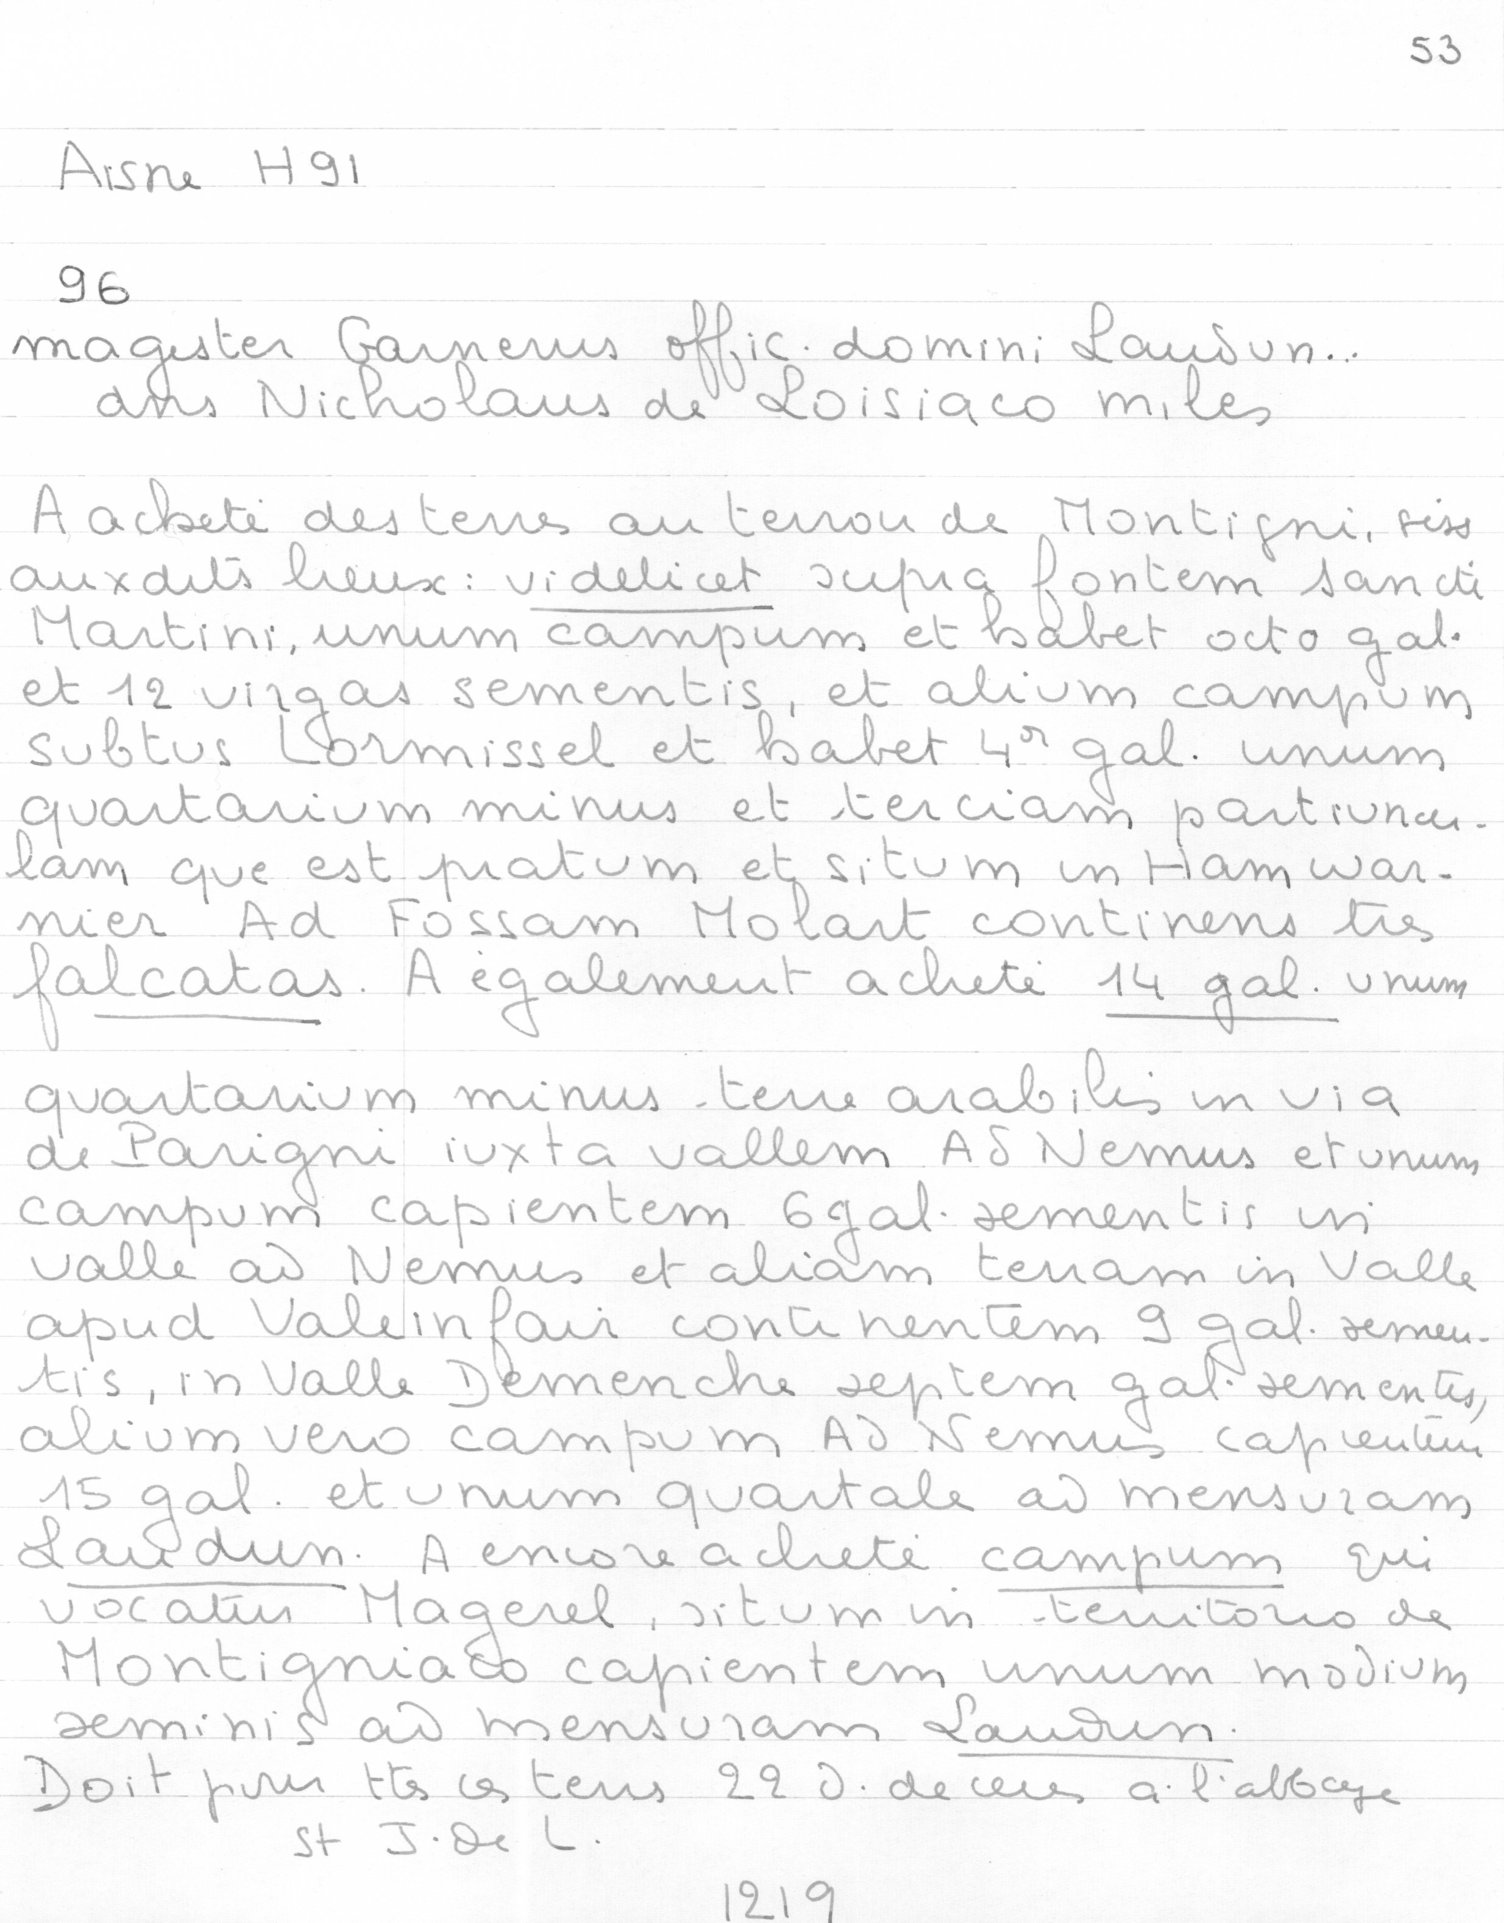 53
Aisne H 91
96
magister Garnerus offic. domini Laudun..
dns Nicholaus de Loisiaco miles
A acheté des terres au terroir de Montigni, sises
auxdits lieux : videlicet supra fontem sancti
Martini, unum campum et habet octo gal.
et 12 virgas sementis, et alium campum
subtus Lormissel et habet 4r gal. unum
quartarium minus et terciam partiuncu-
lam que est pratum et situm in Hamwar-
nier Ad Fossam Molart continens tres
falcatas. A également acheté 14 gal. unum
quartarium minus terre arabilis in via
de Parigni iuxta vallem Ad Nemus et unum
campum capientem 6 gal. sementis in
valle ad Nemus et aliam terram in Valle
apud Valeinfair continentem 9 gal. semen-
tis, in Valle Demenche septem gal. sementis,
alium vero campum Ad Nemus capientem
15 gal. et unum quartale ad mensuram
Laudun. A encore acheté campum qui
vocatur Magerel, situm in territorio de
Montigniaco capientem unum modium
seminis ad mensuram Laudun.
Doit pour ttes ces terres 22 d. de cens a l'abbaye
st J. de L.
1219